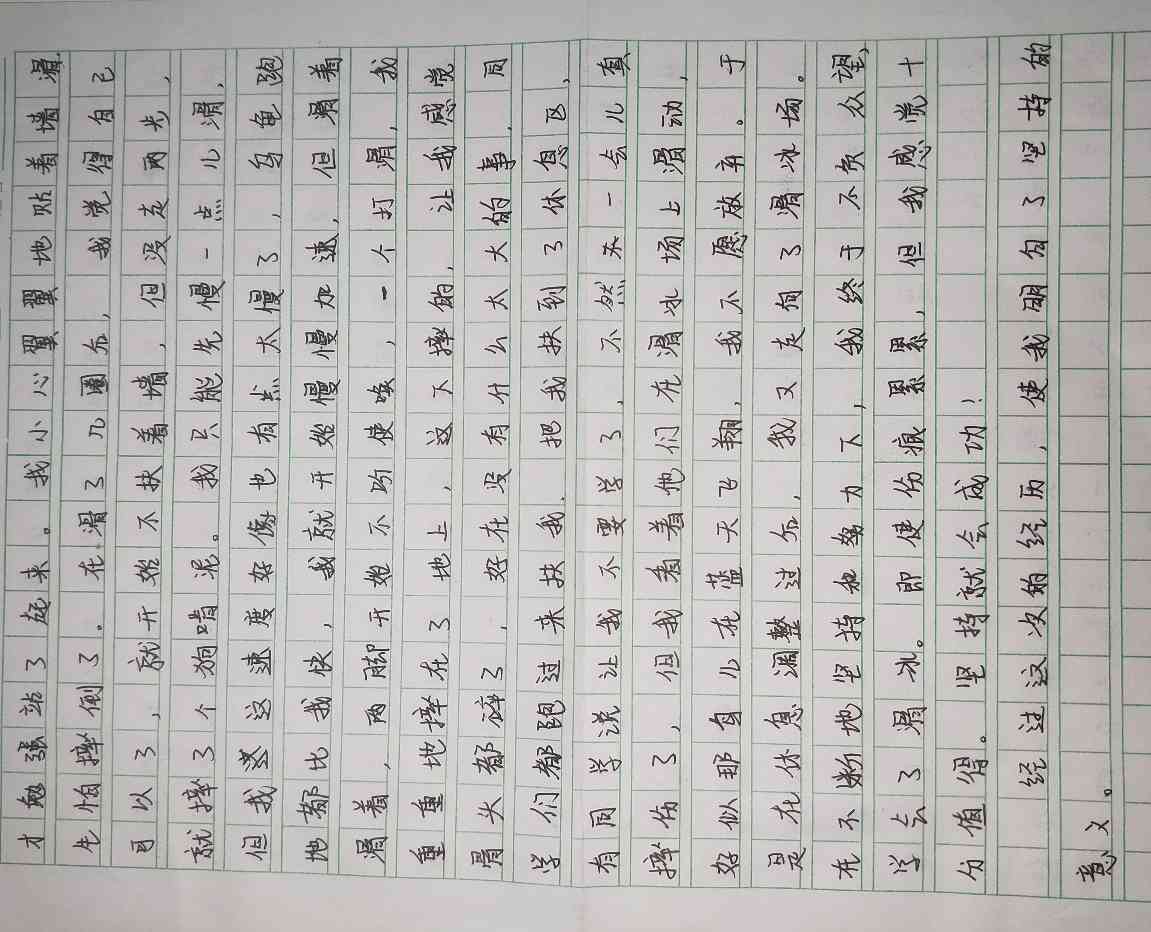 才勉强站了起来。我小心翼翼地贴着墙滑
生怕摔倒了。在滑了几圈后，我觉得自己
可以了，就开始不扶着墙，但没走两步，
就摔了个狗啃泥。我只能先慢一点儿滑，
但我这速度好像也有点太慢了，乌龟跑
地都比我快，我就开始慢慢加速，但滑着
滑着，两脚开始不听使唤，一个打滑，我
重重地摔在了地上，这下摔的，让我感觉
骨头都碎了，好在没有什么太大的事，同
学们都跑过来扶我，把我扶到了休息区，
有同学说让我不要学了，不然一会儿真
摔伤了，但我看着他们在滑冰场上滑动，
好似那鸟儿在蓝天飞翔，我不愿放弃。于
是在休息调整过后，我又走向了滑冰场。
在不断地坚持和努力下，我终于不负众望，
学会了滑冰。即使伤痕累累，但我感觉十
分值得。坚持就会成功！
经过这次的经历，使我明白了坚持的
意义。